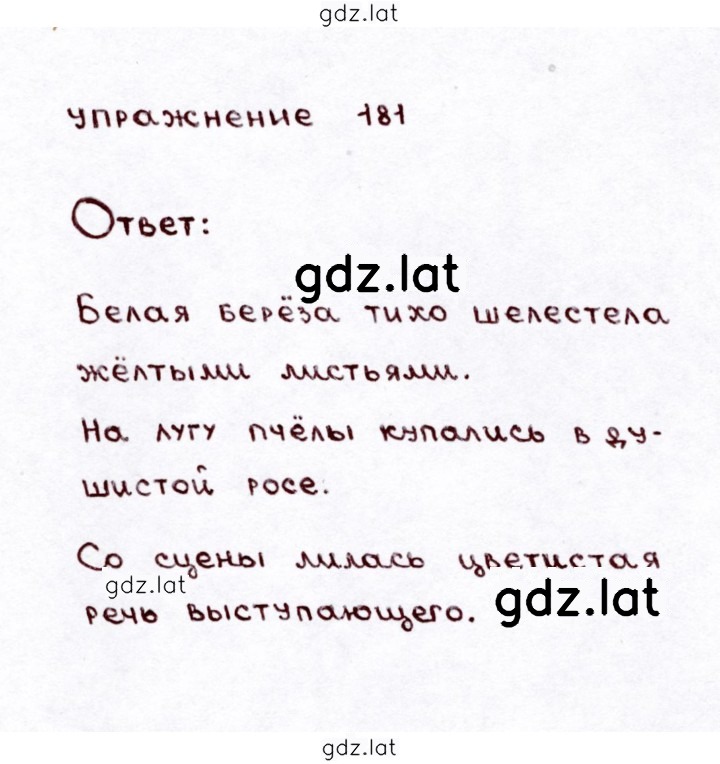 gdz.lat
упражнение 181
Ответ:
gdz.lat
Белая берёза тихо шелестела
жёлтыми листьями.
На лугу пчёлы купались в ду-
шистой росе.
Со сцены лилась цветистая
gdz.lat
речь выступающего.
gdz.lat
gdz.lat